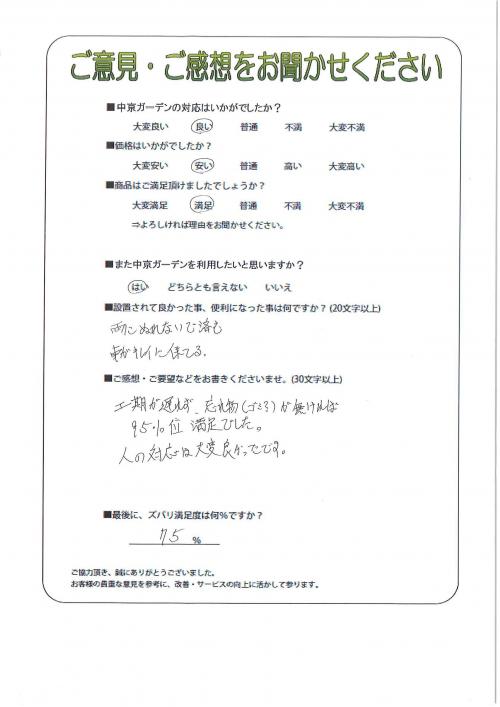 ご意見・ご感想をお聞かせください
■中京ガーデンの対応はいかがでしたか？
大変良い 良い 普通 不満 大変不満
■価格はいかがでしたか？
大変安い 安い 普通 高い 大変高い
■商品はご満足頂けましたでしょうか？
大変満足 満足 普通 不満 大変不満
⇒よろしければ理由をお聞かせください。
■また中京ガーデンを利用したいと思いますか？
はい どちらとも言えない いいえ
■設置されて良かった事、便利になった事は何ですか？(20文字以上)
雨にぬれないで済む
車がキレイに保てる.
■ご感想・ご要望などをお書きくださいませ。(30文字以上)
工期が遅れず、忘れ物(ゴミ?)が無ければ
95%位 満足でした。
人の対応は大変良かったです。
■最後に、ズバリ満足度は何％ですか？
75 %
ご協力頂き、誠にありがとうございました。
お客様の貴重な意見を参考に、改善・サービスの向上に活かして参ります。